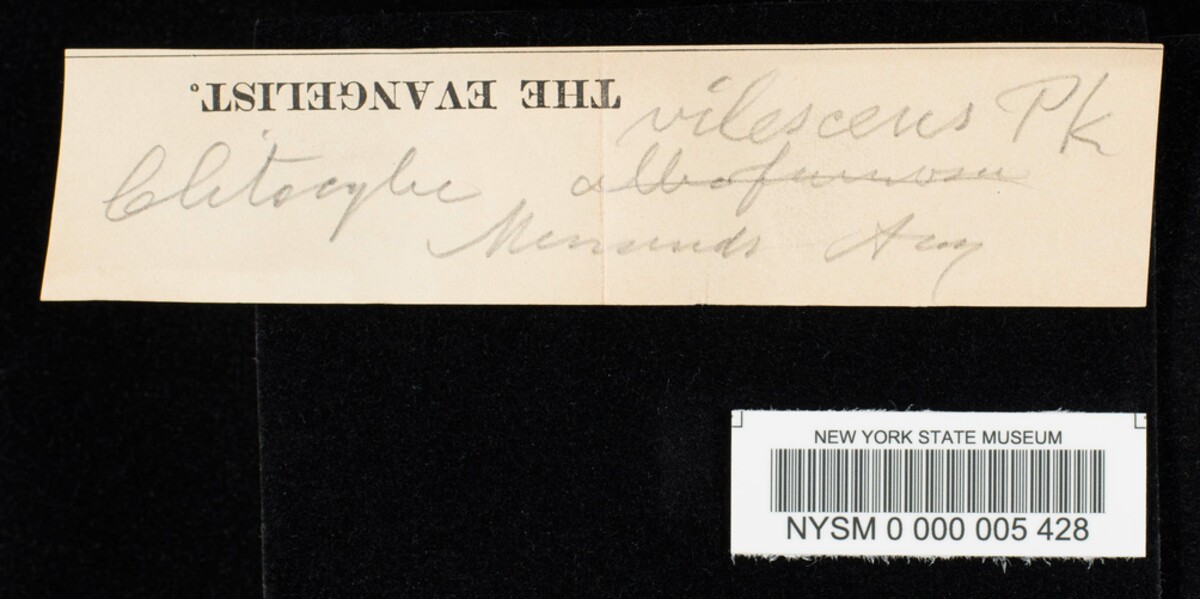 THE EVANGELIST.
vilescens Pk
Clitocybe albofumosa
Menands Aug
NEW YORK STATE MUSEUM
NYSM 0 000 005 428